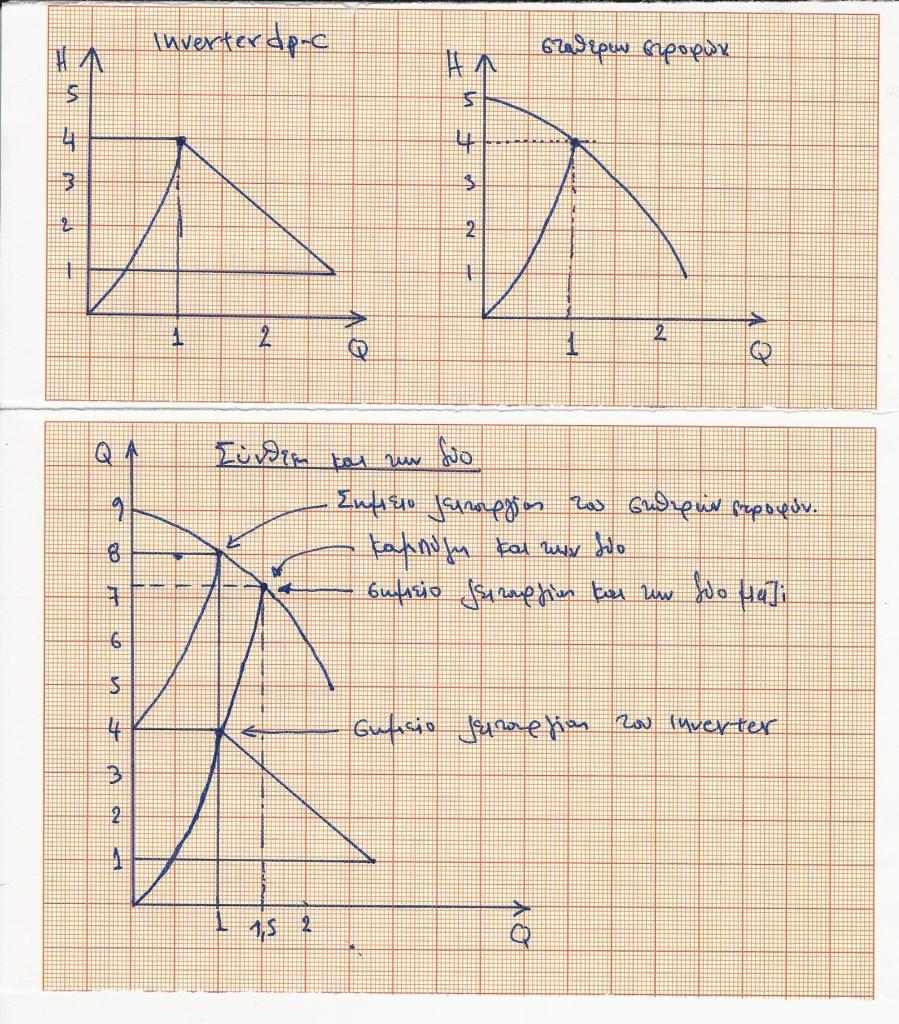 Inverter dp-c
σταθερών στροφών
H
5
4
3
2
1
1 2
Q
H
5
4
3
2
1
1 2
Q
Q
Σύνθεση και των δύο
9
8
7
6
5
4
3
2
1
Σημείο λειτουργίας του σταθερών στροφών.
καμπύλη και των δύο
σημείο λειτουργίας και των δύο μαζί
σημείο λειτουργίας του Inverter
1 1,5 2
Q